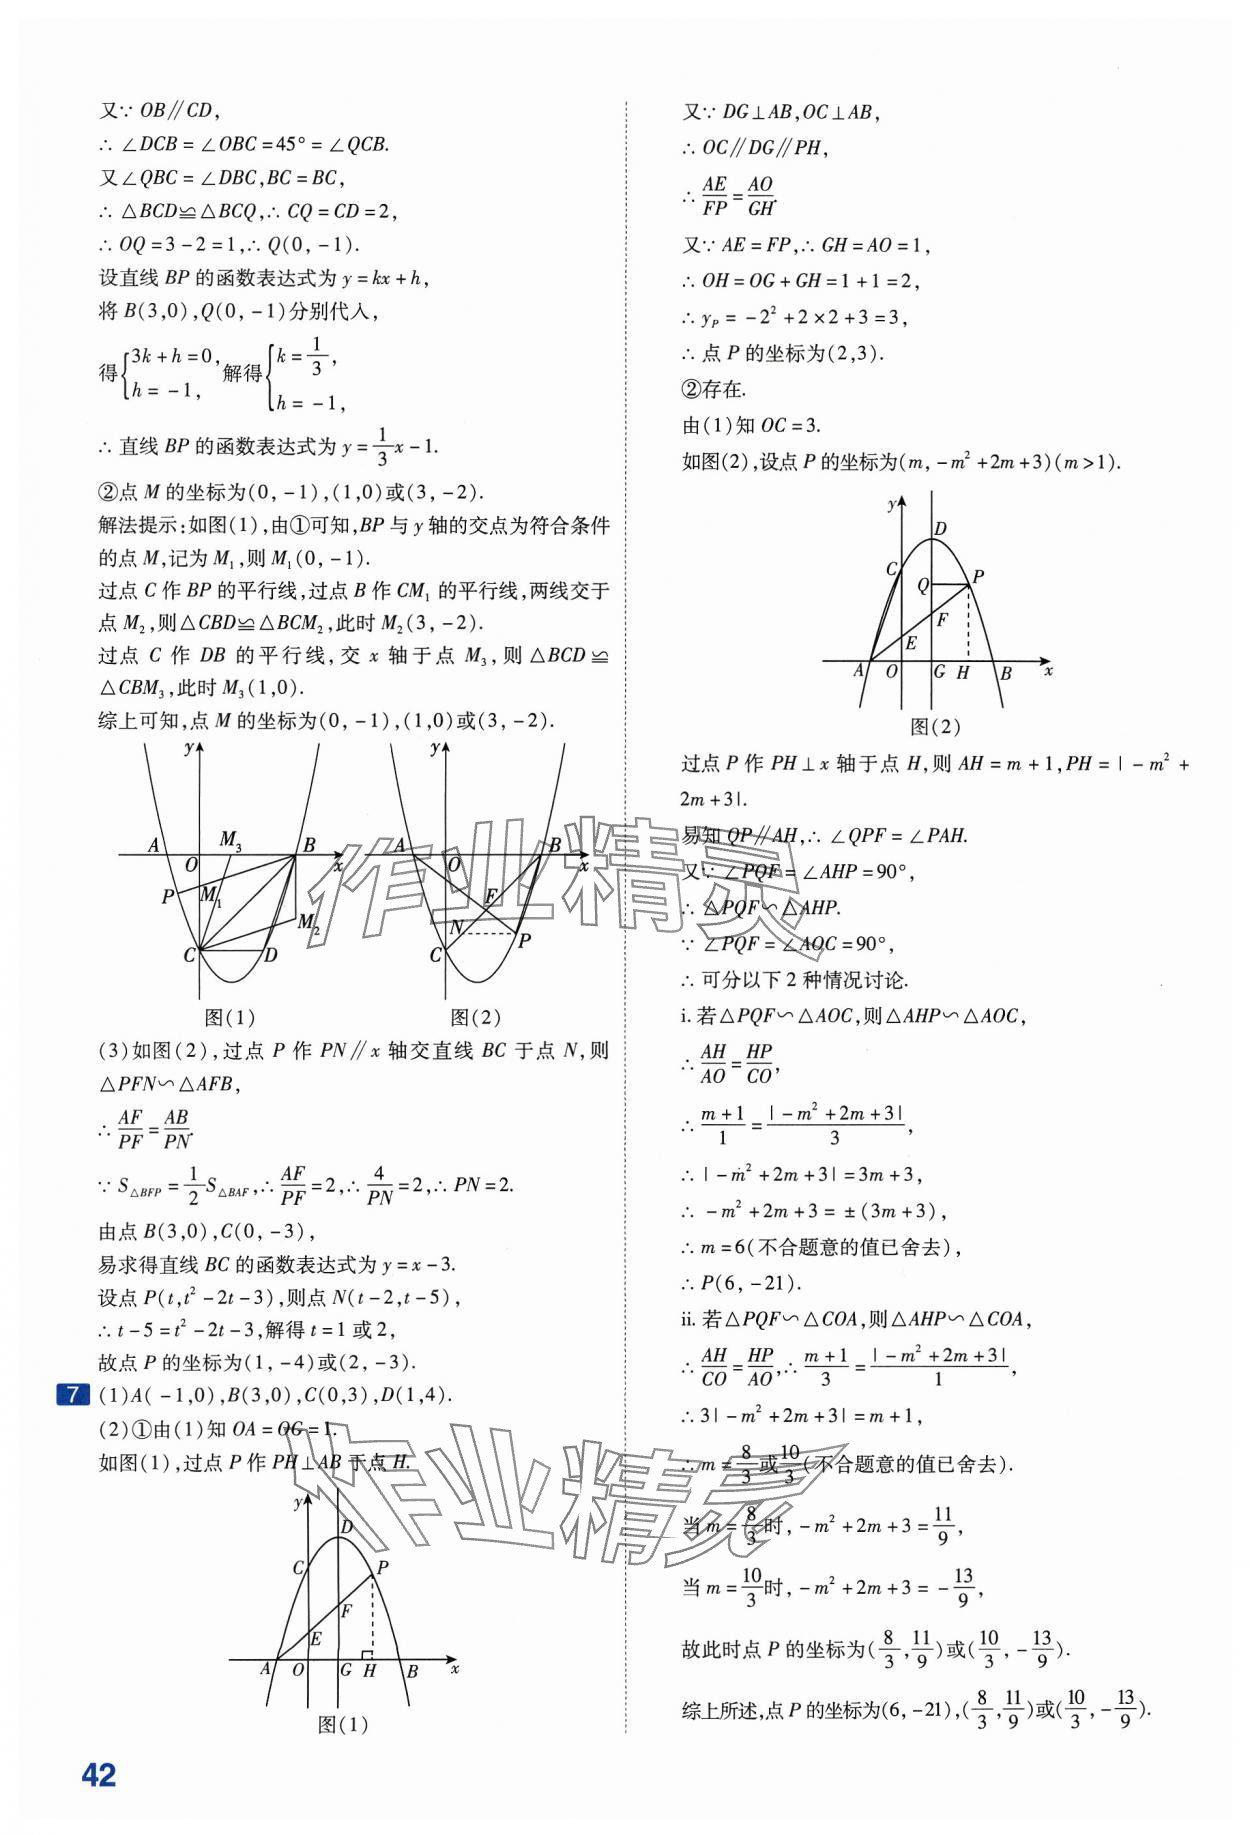 又∵ OB∥CD,
∴ ∠DCB = ∠OBC = 45° = ∠QCB.
又∠QBC = ∠DBC, BC = BC,
∴ △BCD≌△BCQ, ∴ CQ = CD = 2,
∴ OQ = 3 - 2 = 1, ∴ Q(0, -1).
设直线 BP 的函数表达式为 y = kx + h,
将 B(3,0), Q(0, -1)分别代入,
得{3k + h = 0, h = -1, 解得{k = 1/3, h = -1,
∴ 直线 BP 的函数表达式为 y = 1/3 x - 1.
②点 M 的坐标为(0, -1),(1,0)或(3, -2).
解法提示:如图(1),由①可知,BP 与 y 轴的交点为符合条件
的点 M,记为 M₁,则 M₁(0, -1).
过点 C 作 BP 的平行线,过点 B 作 CM₁ 的平行线,两线交于
点 M₂,则△CBD≌△BCM₂,此时 M₂(3, -2).
过点 C 作 DB 的平行线,交 x 轴于点 M₃,则 △BCD≌
△CBM₃,此时 M₃(1,0).
综上可知,点 M 的坐标为(0, -1),(1,0)或(3, -2).
y
A
O
M₃
B
x
P
M₁
M₂
C
D
图(1)
y
A
O
B
x
F
N
P
C
图(2)
(3)如图(2),过点 P 作 PN∥x 轴交直线 BC 于点 N,则
△PFN∽△AFB,
∴ AF/PF = AB/PN.
∵ S△BFP = 1/2 S△BAF, ∴ AF/PF = 2, ∴ 4/PN = 2, ∴ PN = 2.
由点 B(3,0), C(0, -3),
易求得直线 BC 的函数表达式为 y = x - 3.
设点 P(t, t² - 2t - 3),则点 N(t - 2, t - 5),
∴ t - 5 = t² - 2t - 3,解得 t = 1 或 2,
故点 P 的坐标为(1, -4)或(2, -3).
7 (1)A( -1,0), B(3,0), C(0,3), D(1,4).
(2)①由(1)知 OA = OG = 1.
如图(1),过点 P 作 PH⊥AB 于点 H.
y
D
C
P
F
E
A
O
G
H
B
x
图(1)
42
又∵ DG⊥AB, OC⊥AB,
∴ OC∥DG∥PH,
∴ AE/FP = AO/GH.
又∵ AE = FP, ∴ GH = AO = 1,
∴ OH = OG + GH = 1 + 1 = 2,
∴ yP = -2² + 2×2 + 3 = 3,
∴ 点 P 的坐标为(2,3).
②存在.
由(1)知 OC = 3.
如图(2),设点 P 的坐标为(m, -m² + 2m + 3)(m > 1).
y
D
C
Q
P
F
E
A
O
G
H
B
x
图(2)
过点 P 作 PH⊥x 轴于点 H,则 AH = m + 1, PH = | -m² +
2m + 3|.
易知 QP∥AH, ∴ ∠QPF = ∠PAH.
又∵ ∠PQF = ∠AHP = 90°,
∴ △PQF∽△AHP.
∵ ∠PQF = ∠AOC = 90°,
∴ 可分以下 2 种情况讨论.
i. 若△PQF∽△AOC,则△AHP∽△AOC,
∴ AH/AO = HP/CO,
∴ (m + 1)/1 = | -m² + 2m + 3|/3,
∴ | -m² + 2m + 3| = 3m + 3,
∴ -m² + 2m + 3 = ±(3m + 3),
∴ m = 6(不合题意的值已舍去),
∴ P(6, -21).
ii. 若△PQF∽△COA,则△AHP∽△COA,
∴ AH/CO = HP/AO, ∴ (m + 1)/3 = | -m² + 2m + 3|/1,
∴ 3| -m² + 2m + 3| = m + 1,
∴ m = 8/3 或 10/3 (不合题意的值已舍去).
当 m = 8/3 时, -m² + 2m + 3 = 11/9,
当 m = 10/3 时, -m² + 2m + 3 = -13/9,
故此时点 P 的坐标为(8/3, 11/9)或(10/3, -13/9).
综上所述,点 P 的坐标为(6, -21),(8/3, 11/9)或(10/3, -13/9).
作业精灵
作业精灵